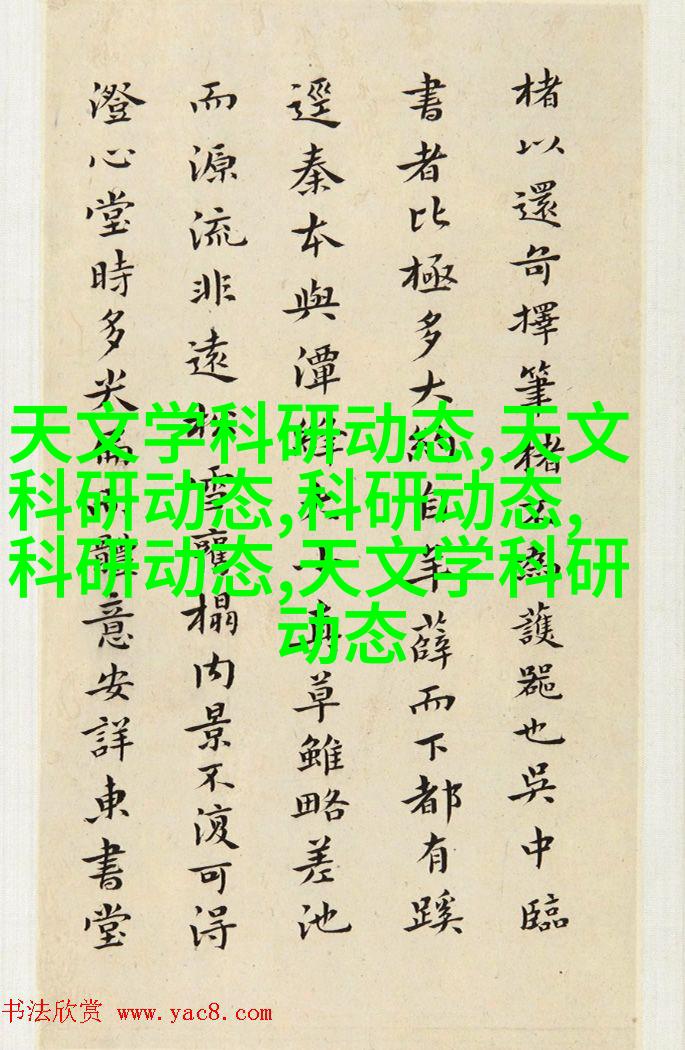 楮以還苟擇筆楮不為護器也吳中臨
書者比極多大約自羊薛而下都有蹊
逕秦本與潭絳十真草雖略差池
而源流非遠松雪雙榻内景不復可得
澄心堂時多米體意安詳東書堂
天文学科研动态,天文
科研动态,科研动态,
科研动态,天文学科研
动态
书法欣赏 www.yac8.com